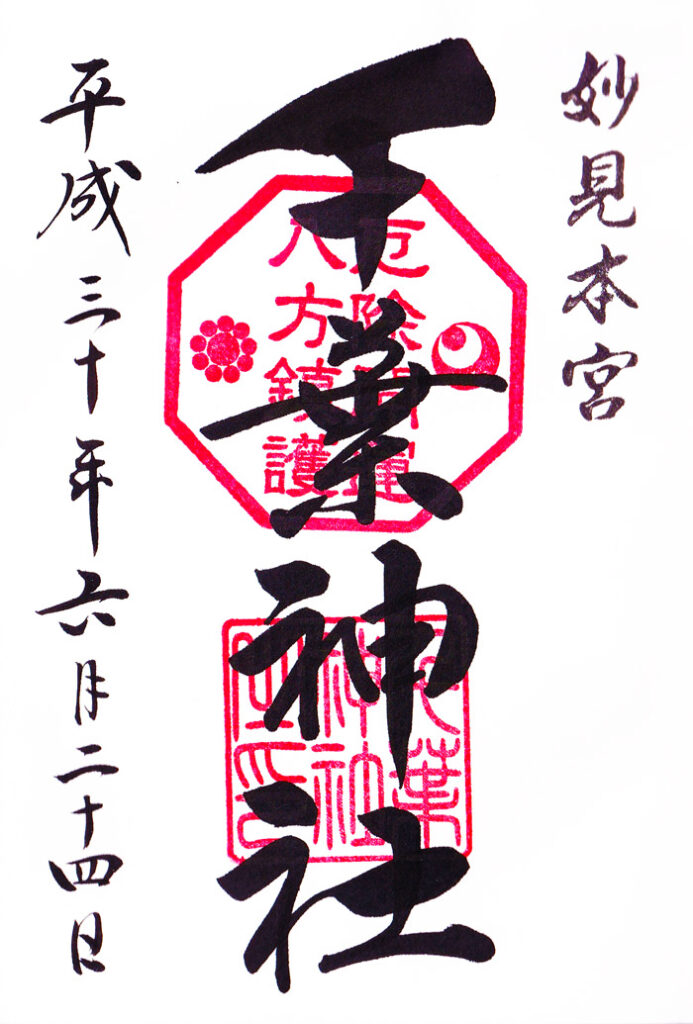 妙見本宮
千葉神社
厄除開運
八方鎮護
平成三十年六月二十四日